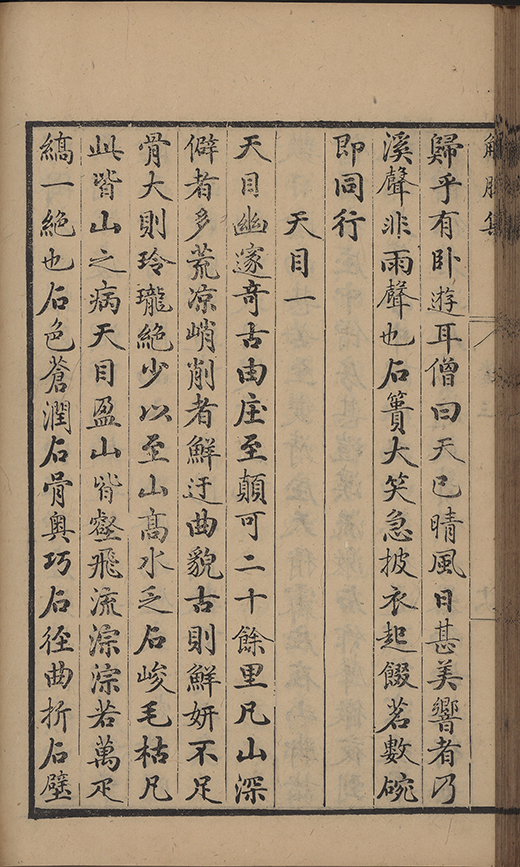 解脫集
歸乎有卧遊耳僧曰天已晴風日甚美響者乃
溪聲非雨聲也石簣大笑急披衣起餟茗數碗
即同行
天目一
天目幽邃奇古由庄至顛可二十餘里凡山深
僻者多荒凉峭削者鮮迂曲貌古則鮮妍不足
骨大則玲瓏絶少以至山髙水乏石峻毛枯凡
此皆山之病天目盈山皆壑飛流淙淙若萬疋
縞一絶也石色蒼潤石骨奥巧石徑曲折石壁